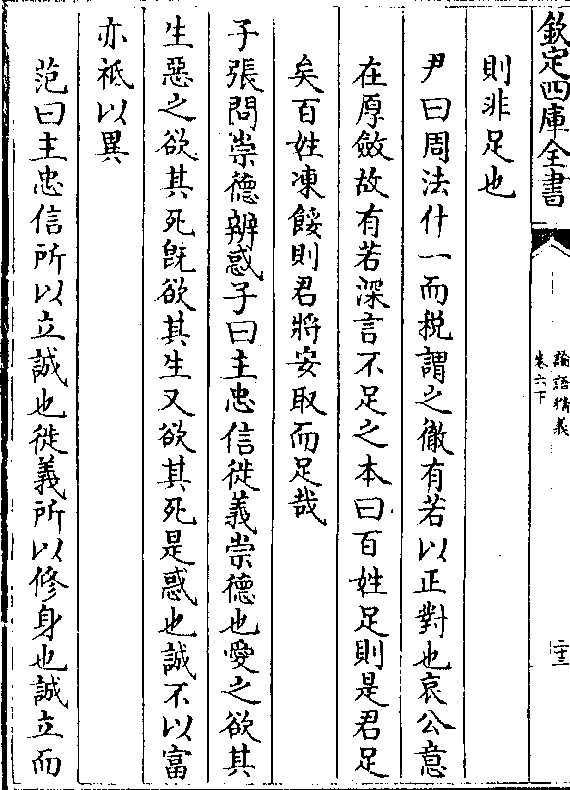 欽定四庫全書
論語精義
卷六下
二十三
則非足也
尹曰周法什一而稅謂之徹有若以正對也哀公意
在厚斂故有若深言不足之本曰百姓足則是君足
矣百姓凍餒則君將安取而足哉
子張問崇德辨惑子曰主忠信徙義崇德也愛之欲其
生惡之欲其死既欲其生又欲其死是惑也誠不以富
亦祗以異
范曰主忠信所以立誠也徙義所以修身也誠立而